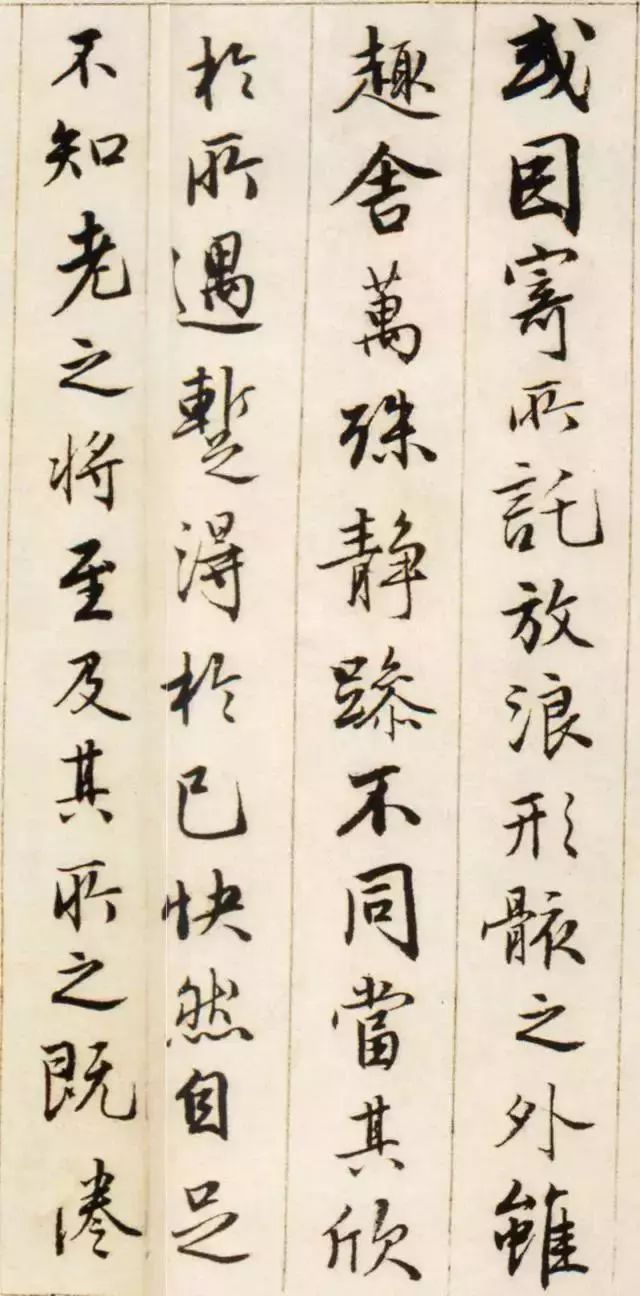 或因寄所託放浪形骸之外雖
趣舍萬殊静躁不同當其欣
於所遇暫得於己快然自足
不知老之将至及其所之既惓